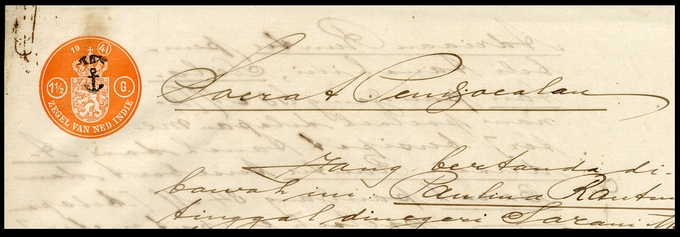 19 41
1½ G.
ZEGEL VAN NED. INDIE
Soerat Pendjoealan
Jang bertanda di-
bawah ini: Paulina Rantu
tinggal dinegeri Sarani